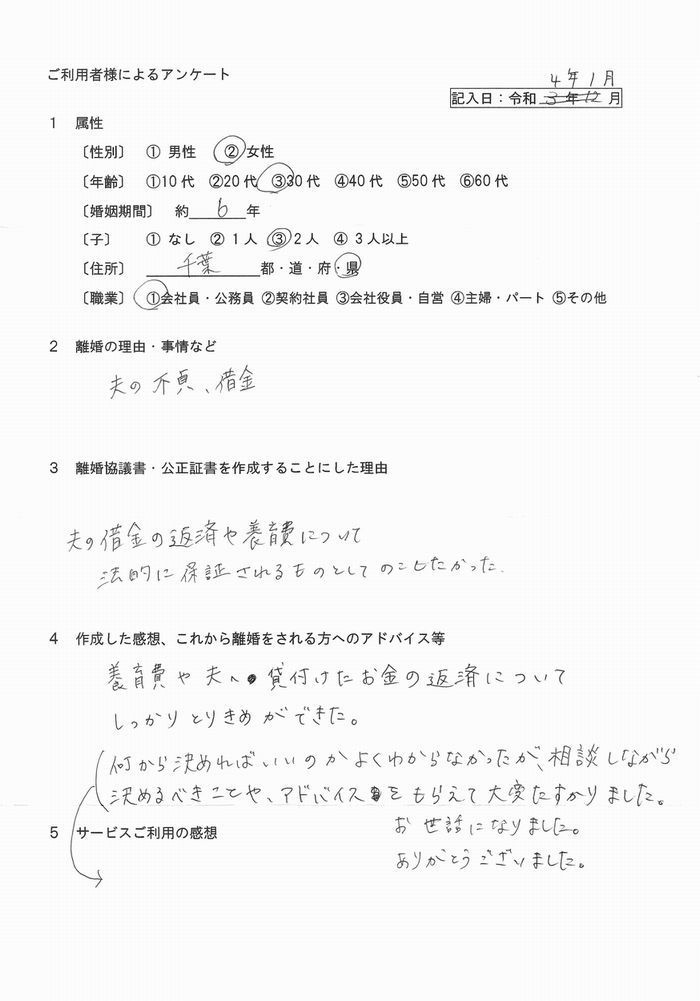 ご利用者様によるアンケート
4年1月
記入日:令和 3年12月
1 属性
〔性別〕 ① 男性 ② 女性
〔年齢〕 ①10代 ②20代 ③30代 ④40代 ⑤50代 ⑥60代
〔婚姻期間〕 約 6 年
〔子〕 ① なし ② 1人 ③ 2人 ④ 3人以上
〔住所〕 千葉 都・道・府・県
〔職業〕 ①会社員・公務員 ②契約社員 ③会社役員・自営 ④主婦・パート ⑤その他
2 離婚の理由・事情など
夫の不貞、借金
3 離婚協議書・公正証書を作成することにした理由
夫の借金の返済や養育費について
法的に保証されるものとしてのこしたかった.
4 作成した感想、これから離婚をされる方へのアドバイス等
養育費や夫へ貸付けたお金の返済について
しっかりとりきめができた。
何から決めればいいのかよくわからなかったが、相談しながら
決めるべきことや、アドバイスをもらえて大変たすかりました。
お世話になりました。
5 サービスご利用の感想
ありがとうございました。